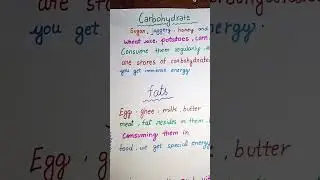 Carbohydrate
Sugar, jaggery, honey and
wheat, rice, potatoes, corn
Consume them regularly
are stores of carbohydrates
you get immense energy
fats
Egg, ghee, milk, butter
meat, fat resides in them
Consuming them in
food, we get special energy
you get
energy.
Egg.
butter